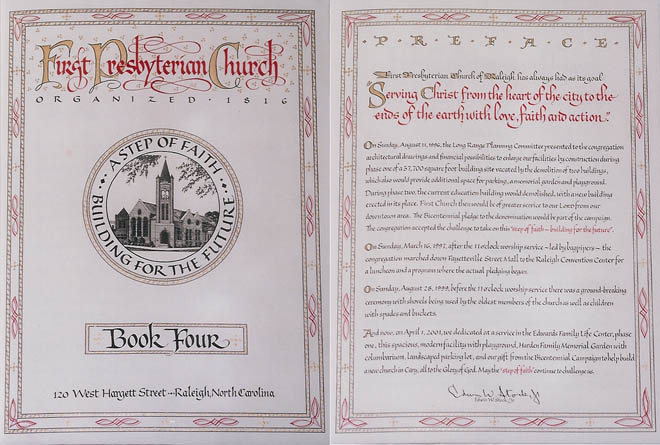 First Presbyterian Church
ORGANIZED · 1816
A STEP OF FAITH
BUILDING FOR THE FUTURE
Book Four
120 West Hargett Street – Raleigh, North Carolina
· P · R · E · F · A · C · E ·
First Presbyterian Church of Raleigh has always had as its goal
"Serving Christ from the heart of the city to the
ends of the earth with love, faith and action."
On Sunday, August 11, 1996, the Long Range Planning Committee presented to the congregation
architectural drawings and financial possibilities to enlarge our facilities by construction during
phase one of a 37,700 square foot building site vacated by the demolition of two buildings,
which also would provide additional space for parking, a memorial garden and playground.
During phase two, the current education building would demolished, with a new building
erected in its place. First Church then would be of greater service to our Lord from our
downtown area. The Bicentennial pledge to the denomination would be part of the campaign.
The congregation accepted the challenge to take on this "step of faith – building for the future".
On Sunday, March 16, 1997, after the 11 o'clock worship service – led by bagpipers – the
congregation marched down Fayetteville Street Mall to the Raleigh Convention Center for
a luncheon and a program where the actual pledging began.
On Sunday, August 28, 1999, before the 11 o'clock worship service there was a ground-breaking
ceremony with shovels being used by the oldest members of the church as well as children
with spades and buckets.
And now, on April 1, 2001, we dedicated at a service in the Edwards Family Life Center, phase
one, this spacious, modern facility with playground, Harden Family Memorial Garden with
columbarium, landscaped parking lot, and our gift from the Bicentennial Campaign to help build
a new church in Cary, all to the Glory of God. May the "step of faith" continue to challenge us.